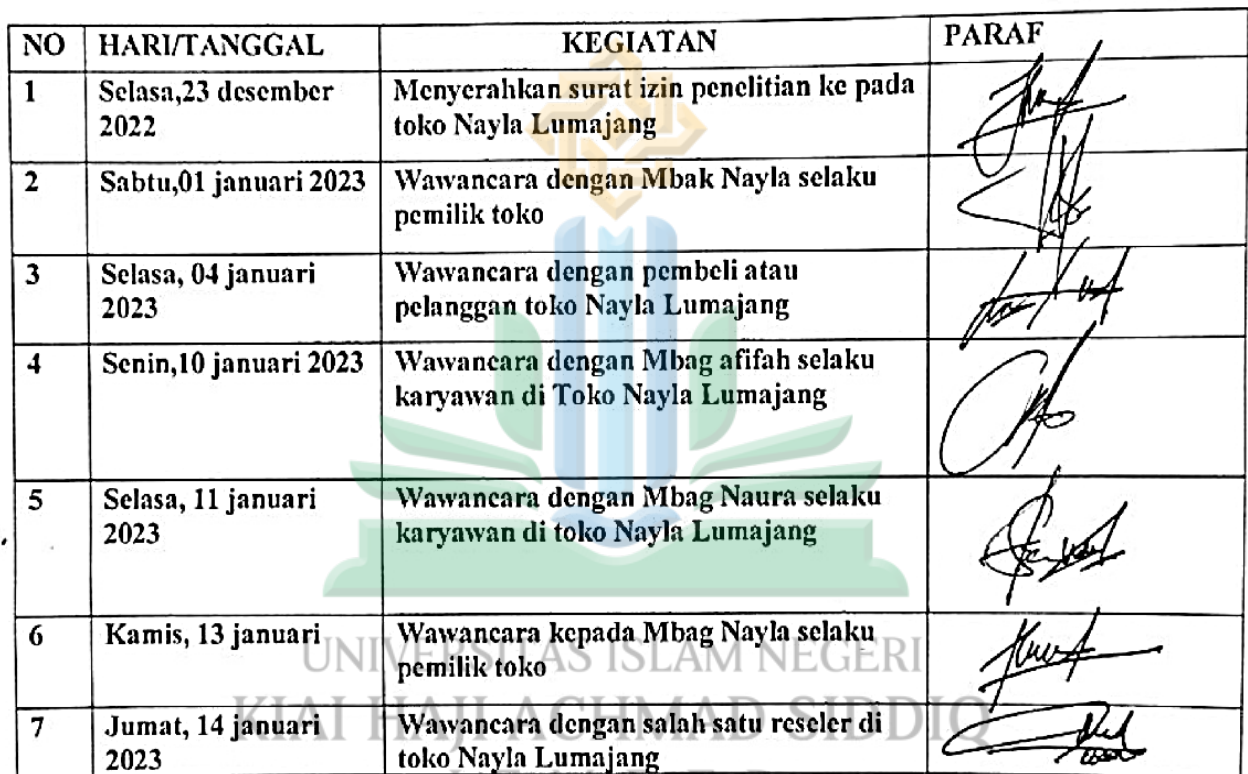 NO HARI/TANGGAL KEGIATAN PARAF
1 Selasa,23 desember 2022 Menyerahkan surat izin penelitian ke pada toko Nayla Lumajang
2 Sabtu,01 januari 2023 Wawancara dengan Mbak Nayla selaku pemilik toko
3 Selasa, 04 januari 2023 Wawancara dengan pembeli atau pelanggan toko Nayla Lumajang
4 Senin,10 januari 2023 Wawancara dengan Mbag afifah selaku karyawan di Toko Nayla Lumajang
5 Selasa, 11 januari 2023 Wawancara dengan Mbag Naura selaku karyawan di toko Nayla Lumajang
6 Kamis, 13 januari Wawancara kepada Mbag Nayla selaku pemilik toko
UNIVERSITAS ISLAM NEGERI
KIAI HAJI ACHMAD SIDDIQ
7 Jumat, 14 januari 2023 Wawancara dengan salah satu reseler di toko Nayla Lumajang